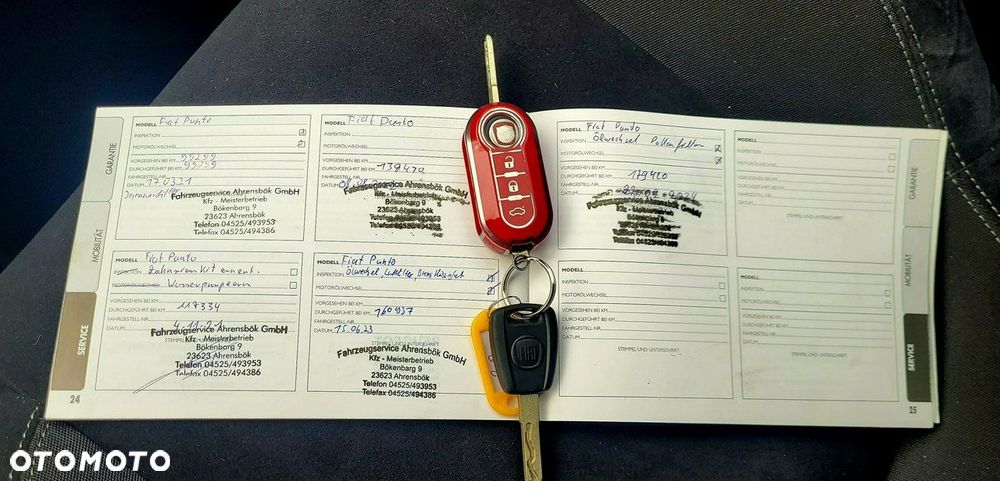 MODELL Fiat Punto
INSPEKTION
MOTORÖLWECHSEL
VORGESEHEN BEI KM 99299
DURCHGEFÜHRT BEI KM 99299
FAHRGESTELL-NR.
DATUM 17.03.21
Fahrzeugservice Ahrensbök GmbH
Kfz - Meisterbetrieb
Bökenbarg 9
23623 Ahrensbök
Telefon 04525/493953
Telefax 04525/494386
MODELL Fiat Punto
INSPEKTION
MOTORÖLWECHSEL
VORGESEHEN BEI KM
DURCHGEFÜHRT BEI KM
FAHRGESTELL-NR.
DATUM
Fahrzeugservice Ahrensbök GmbH
Kfz - Meisterbetrieb
Bökenbarg 9
23623 Ahrensbök
Telefon 04525/493953
Telefax 04525/494386
MODELL Fiat Punto
INSPEKTION Ölwechsel Pollenfilter
MOTORÖLWECHSEL
VORGESEHEN BEI KM
DURCHGEFÜHRT BEI KM
FAHRGESTELL-NR.
DATUM
MODELL
INSPEKTION
MOTORÖLWECHSEL
VORGESEHEN BEI KM
DURCHGEFÜHRT BEI KM
FAHRGESTELL-NR.
DATUM
STEMPEL UND UNTERSCHRIFT
MODELL Fiat Punto
INSPEKTION Zahnriemkit erneut.
MOTORÖLWECHSEL Wasserpumpe
VORGESEHEN BEI KM
DURCHGEFÜHRT BEI KM 117334
FAHRGESTELL-NR.
DATUM
Fahrzeugservice Ahrensbök GmbH
Kfz - Meisterbetrieb
Bökenbarg 9
23623 Ahrensbök
Telefon 04525/493953
Telefax 04525/494386
MODELL Fiat Punto
INSPEKTION Ölwechsel
MOTORÖLWECHSEL
VORGESEHEN BEI KM
DURCHGEFÜHRT BEI KM 160937
FAHRGESTELL-NR.
DATUM 15.06.23
STEMPEL UND UNTERSCHRIFT
Fahrzeugservice Ahrensbök GmbH
Kfz - Meisterbetrieb
Bökenbarg 9
23623 Ahrensbök
Telefon 04525/493953
Telefax 04525/494386
MODELL
INSPEKTION
MOTORÖLWECHSEL
VORGESEHEN BEI KM
DURCHGEFÜHRT BEI KM
FAHRGESTELL-NR.
DATUM
STEMPEL UND UNTERSCHRIFT
MODELL
INSPEKTION
MOTORÖLWECHSEL
VORGESEHEN BEI KM
DURCHGEFÜHRT BEI KM
FAHRGESTELL-NR.
DATUM
STEMPEL UND UNTERSCHRIFT
GARANTIE
MOBILITÄT
SERVICE
24
GARANTIE
MOBILITÄT
SERVICE
25
FIAT
OTOMOTO